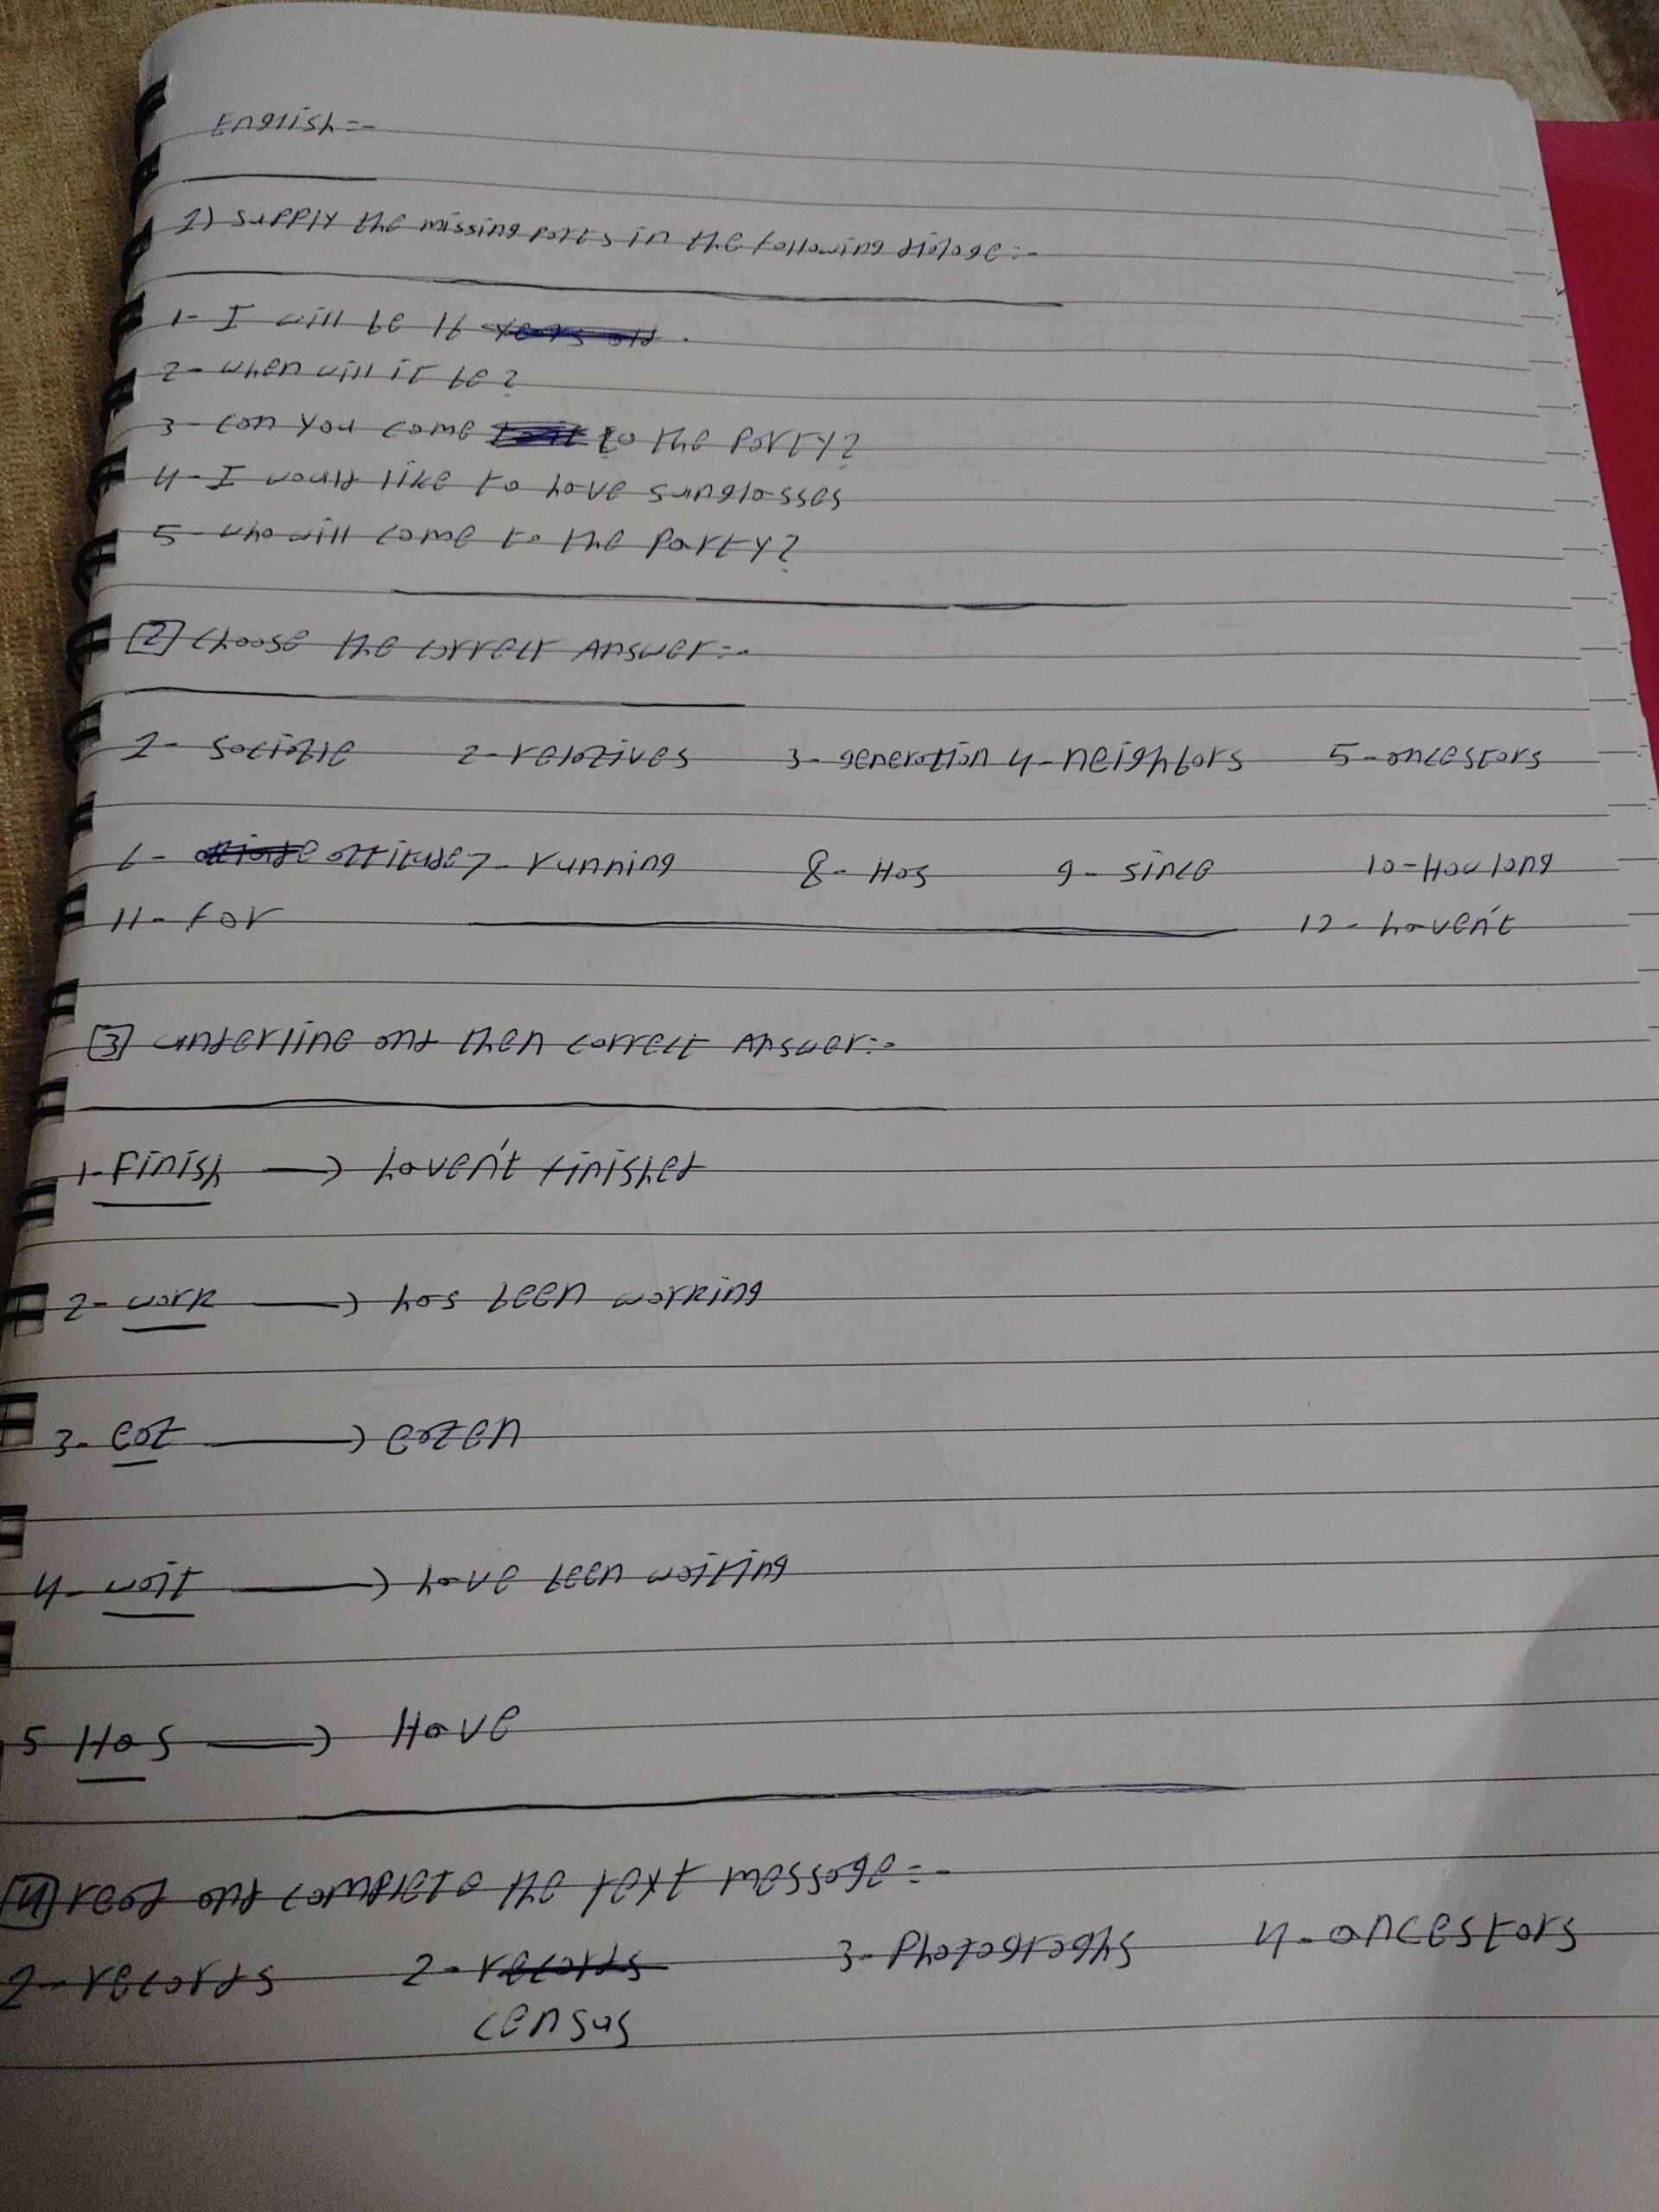 English:-
1) supply the missing parts in the following dialoge:-
1- I will be 16 years old.
2- when will it be?
3- can you come to the party?
4- I would like to have sunglasses
5- who will come to the party?
[2] choose the correct Answer:-
1- socialie 2- relatives 3- generation 4- neighbors 5- ancestors
6- attitude 7- running 8- Has 9- since 10- How long
11- for 12- haven't
[3] underline and then correct Answer:-
1- Finish → haven't finished
2- work → has been working
3- eat → eaten
4- wait → have been waiting
5 Has → Have
[4] read and complete the text message:-
1- records 2- records 3- Photographs 4- ancestors
census